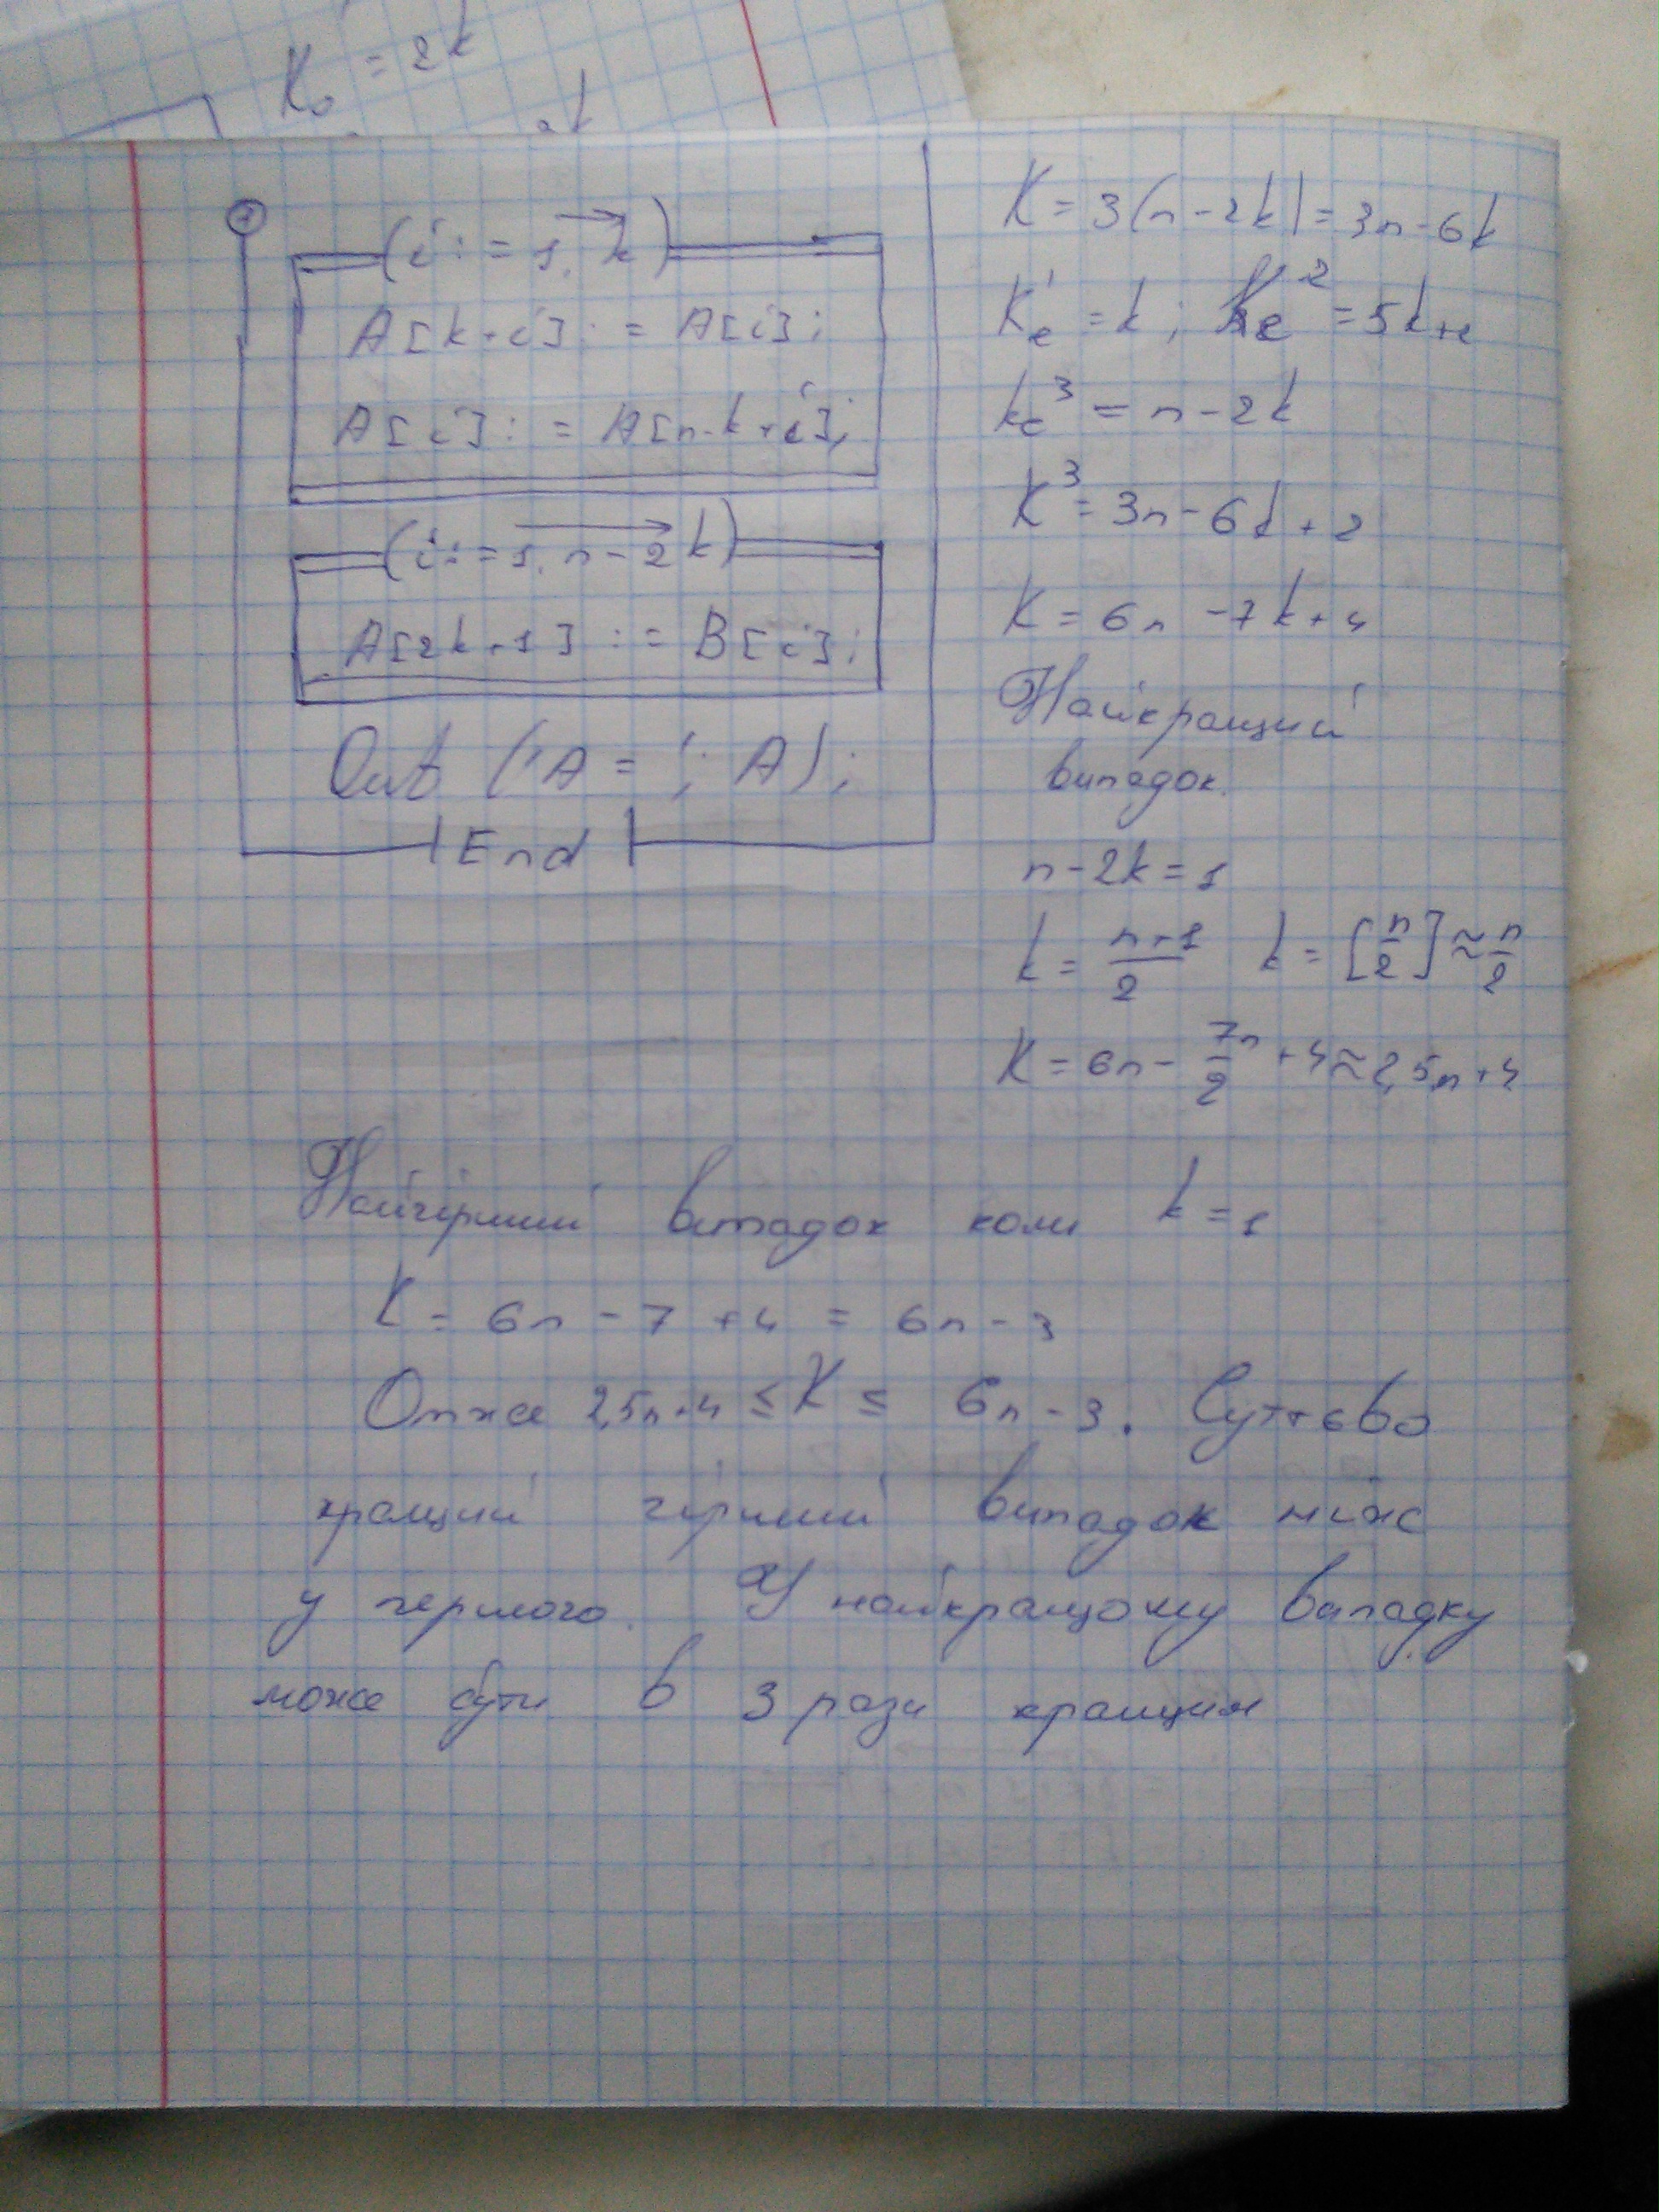 K₀ = 2k
(i := 1, k)
A[k+i] := A[i];
A[i] := A[n-k+i];
(i := 1, n-2k)
A[2k+1] := B[i];
Out ('A = '; A);
End
K = 3(n-2k) = 3n-6k
Kc¹ = k; Kc² = 5k+2
kc³ = n-2k
K³ = 3n-6k+2
K = 6n-7k+4
Найкращий
випадок.
n-2k=1
k = n+1/2 k = [n/2] ≈ n/2
K = 6n - 7n/2 + 4 ≈ 2,5n+4
Найгірший випадок коли k=1
K = 6n - 7 + 4 = 6n - 3
Отже 2,5n+4 ≤ K ≤ 6n-3. Суттєво
кращий гірший випадок ніж
у першого. У найкращому випадку
може бути в 3 рази кращим